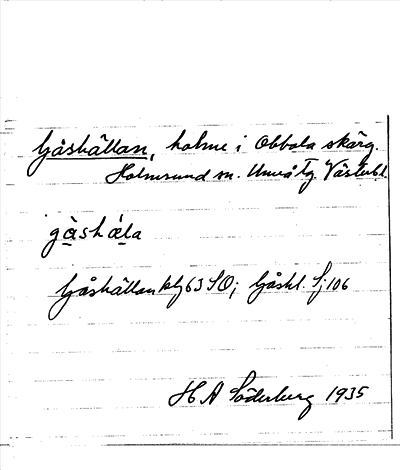 Gåshällan, holme i Obbola skärg.
Holmsund sn. Umeå Tg. Västerb.l.
gå̀shä́la
Gåshällan klj 63 SO; Gåshl. Sj 106
H A Söderberg 1935